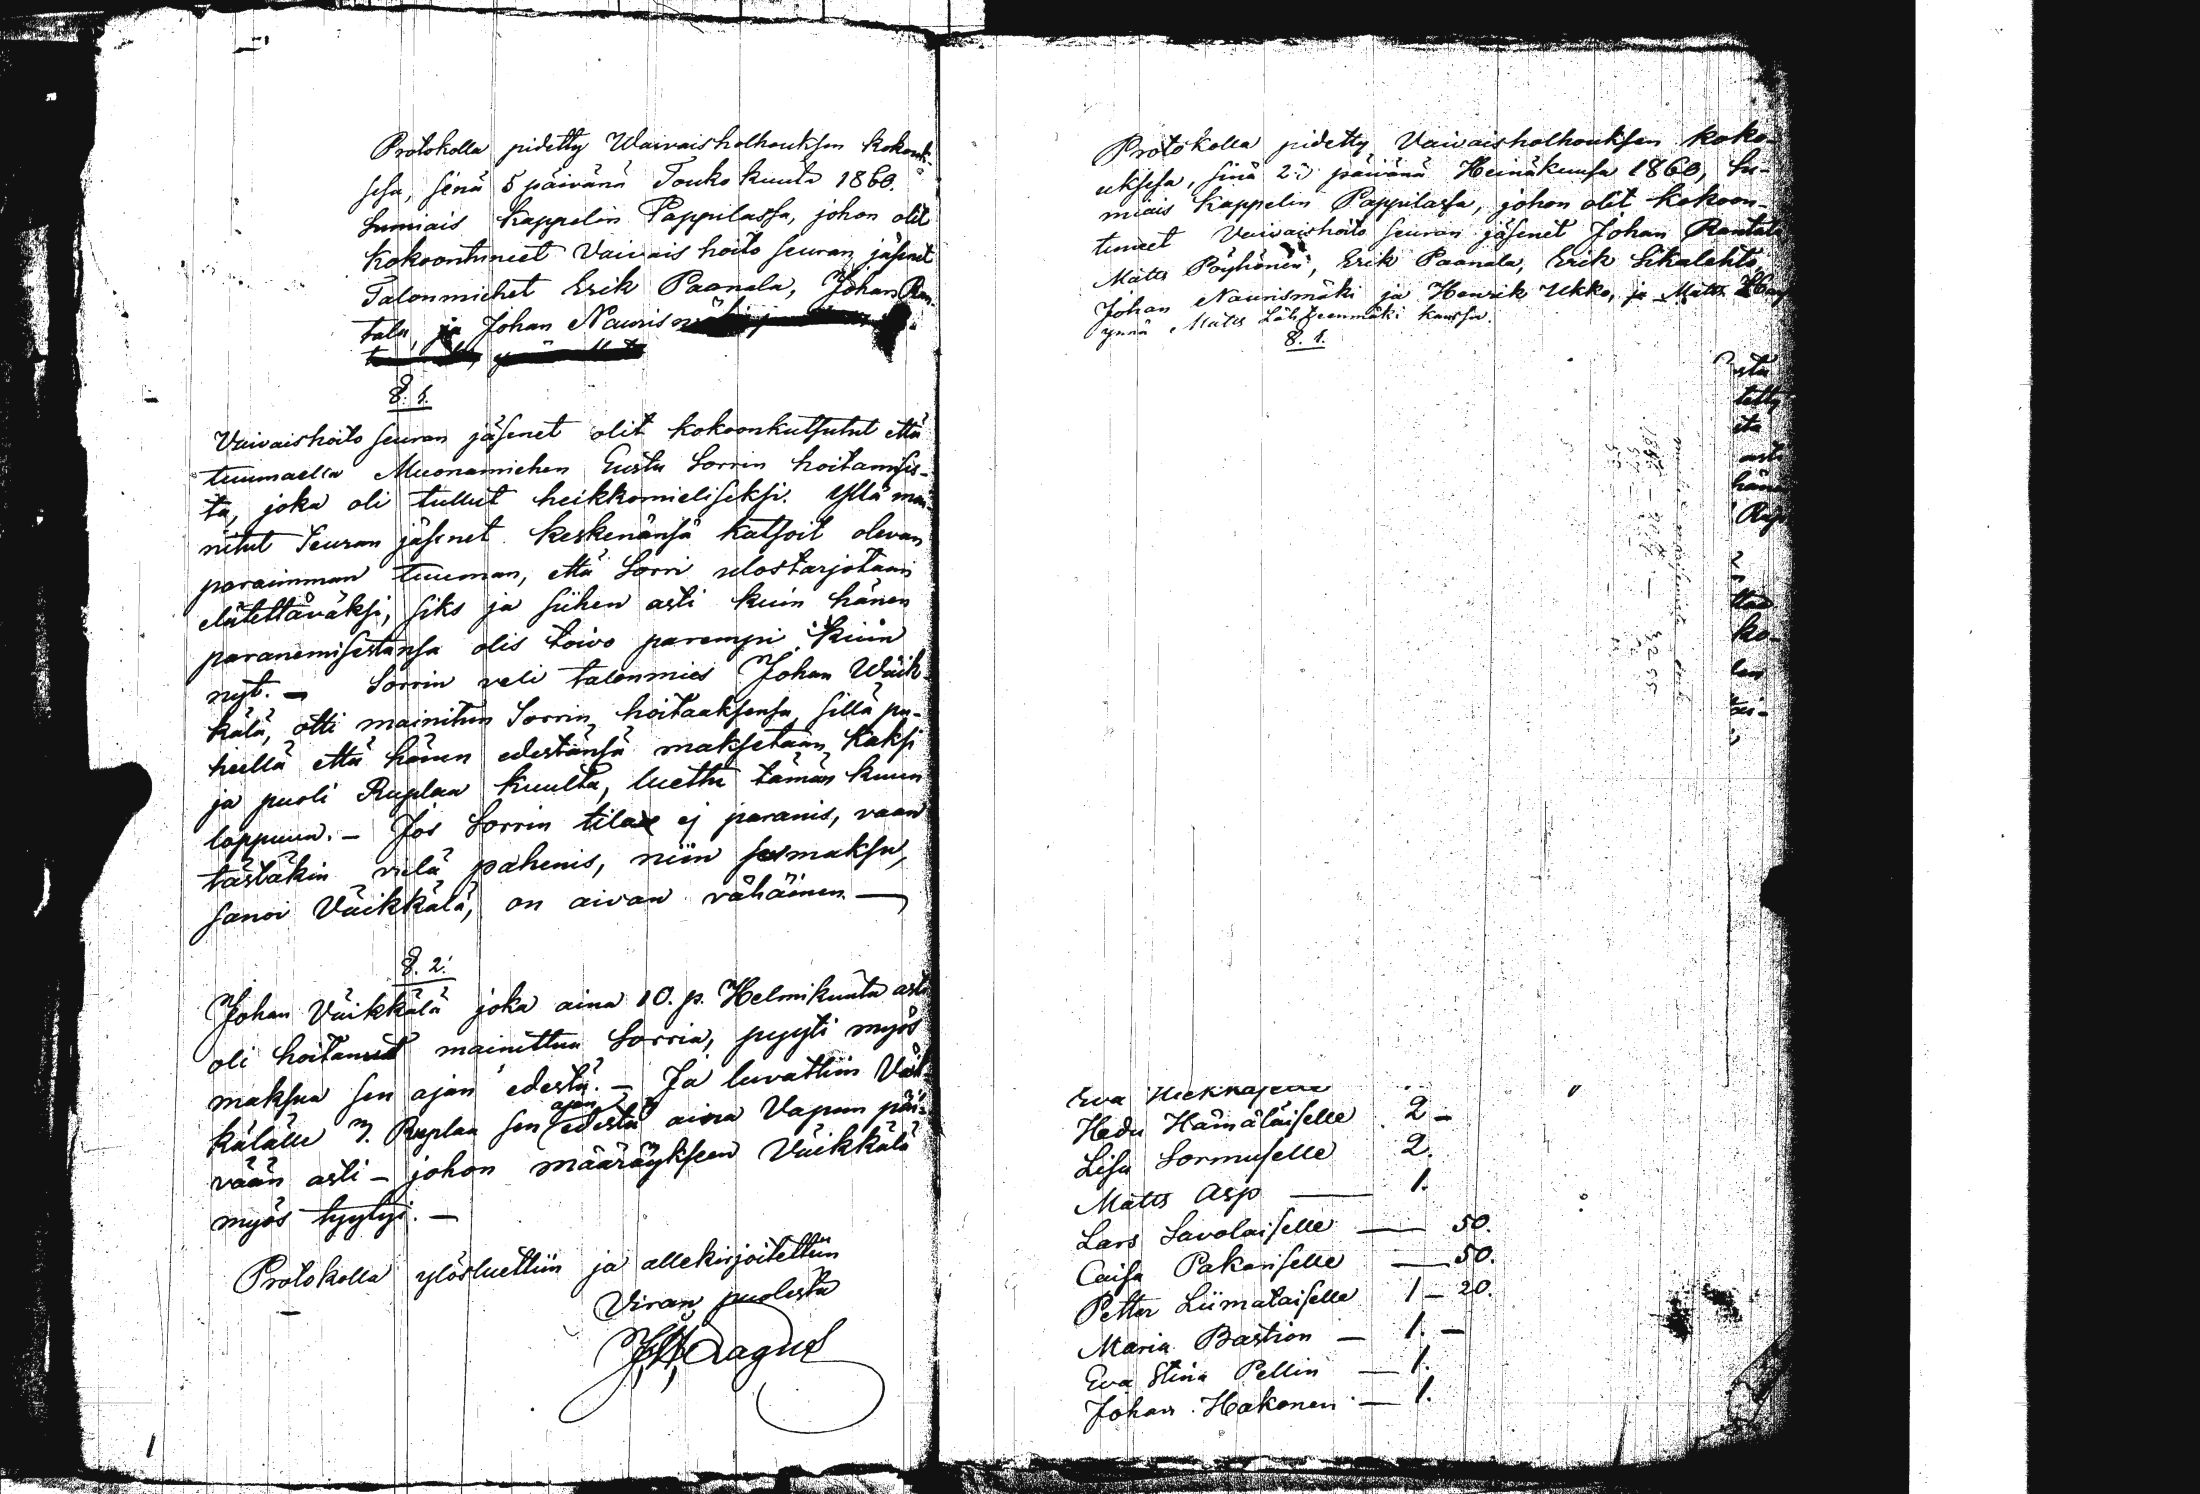 Protokolla pidetty Waivaisholhouksen kokouk-
sesa, sinä 5 päivänä Toukokuuta 1860.
Sumiais Kappelin Pappilassa, johon olit
Kokoontuneet Vaivaishoito seuran jäsenet
Talonmiehet Erik Paanala, Johan Ran-
tala, ja Johan Nauris
§. 1.
Vaivaishoito seuran jäsenet olit kokoonkutsutut että
tuumaella Muonamiehen Gusta Sorrin hoitamises-
ta, joka oli tullut heikkomieliseksi. Yllä mai-
nitut Seuran jäsenet keskenänsä katsoit olevan
paraimman tuuman, että Sorri ulostarjotaan
elätettäväksi, siks ja siihen asti kuin hänen
paranemisestansa olis toivo parempi kuin
nyt. — Sorrin veli talonmies Johan Wäik-
kälä, otti mainitun Sorrin hoitaaksensa sillä pu-
heella että hänen edestänsä maksetaan Kaksi
ja puoli Ruplaa kuulta, luettu tämän kuun
loppuun. — Jos Sorrin tila ej paranis, vaan
tästäkin vielä pahenis, niin maksu,
sanoi Väikkälä, on aivan vähäinen —
§. 2.
Johan Väikkälä joka aina 10. p. Helmikuuta asti
oli hoitanut mainittua Sorria, pyyti myös
maksua sen ajan edestä. — Ja luvattiin Väik-
kälälle 7. Ruplaa sen ajan edestä aina Vapun päi-
vään asti — johon määräykseen Väikkälä
myös tyytyi. —
Protokolla ylösluettiin ja allekirjoitettiin
Viran puolesta
Protokolla pidetty Vaivaisholhouksen koko-
uksesa, sinä 2 päivänä Heinäkuusa 1860, Su-
miais Kappelin Pappilassa, johon olit kokoon-
tuneet Vaivaishoito seuran jäsenet Johan Rantala
Matts Pöyhönen, Erik Paanala, Erik Sikalahto
Johan Naurismäki ja Henrik Ukko, ja Matts
ynnä Matts Lähteenmäki kanssa.
§. 1.
sta
tetty
eta
asti
hänen
ko-
len
Eva
Hedu Hämäläiselle 2 —
Lisa Sormuselle 2.
Matts Asp — 1.
Lars Savolaiselle — 50.
Caisa Pakariselle — 50.
Petter Liimataiselle 1 — 20.
Maria Bastion — 1. —
Eva Stina Pellin — 1.
Johan Hakonen — 1.